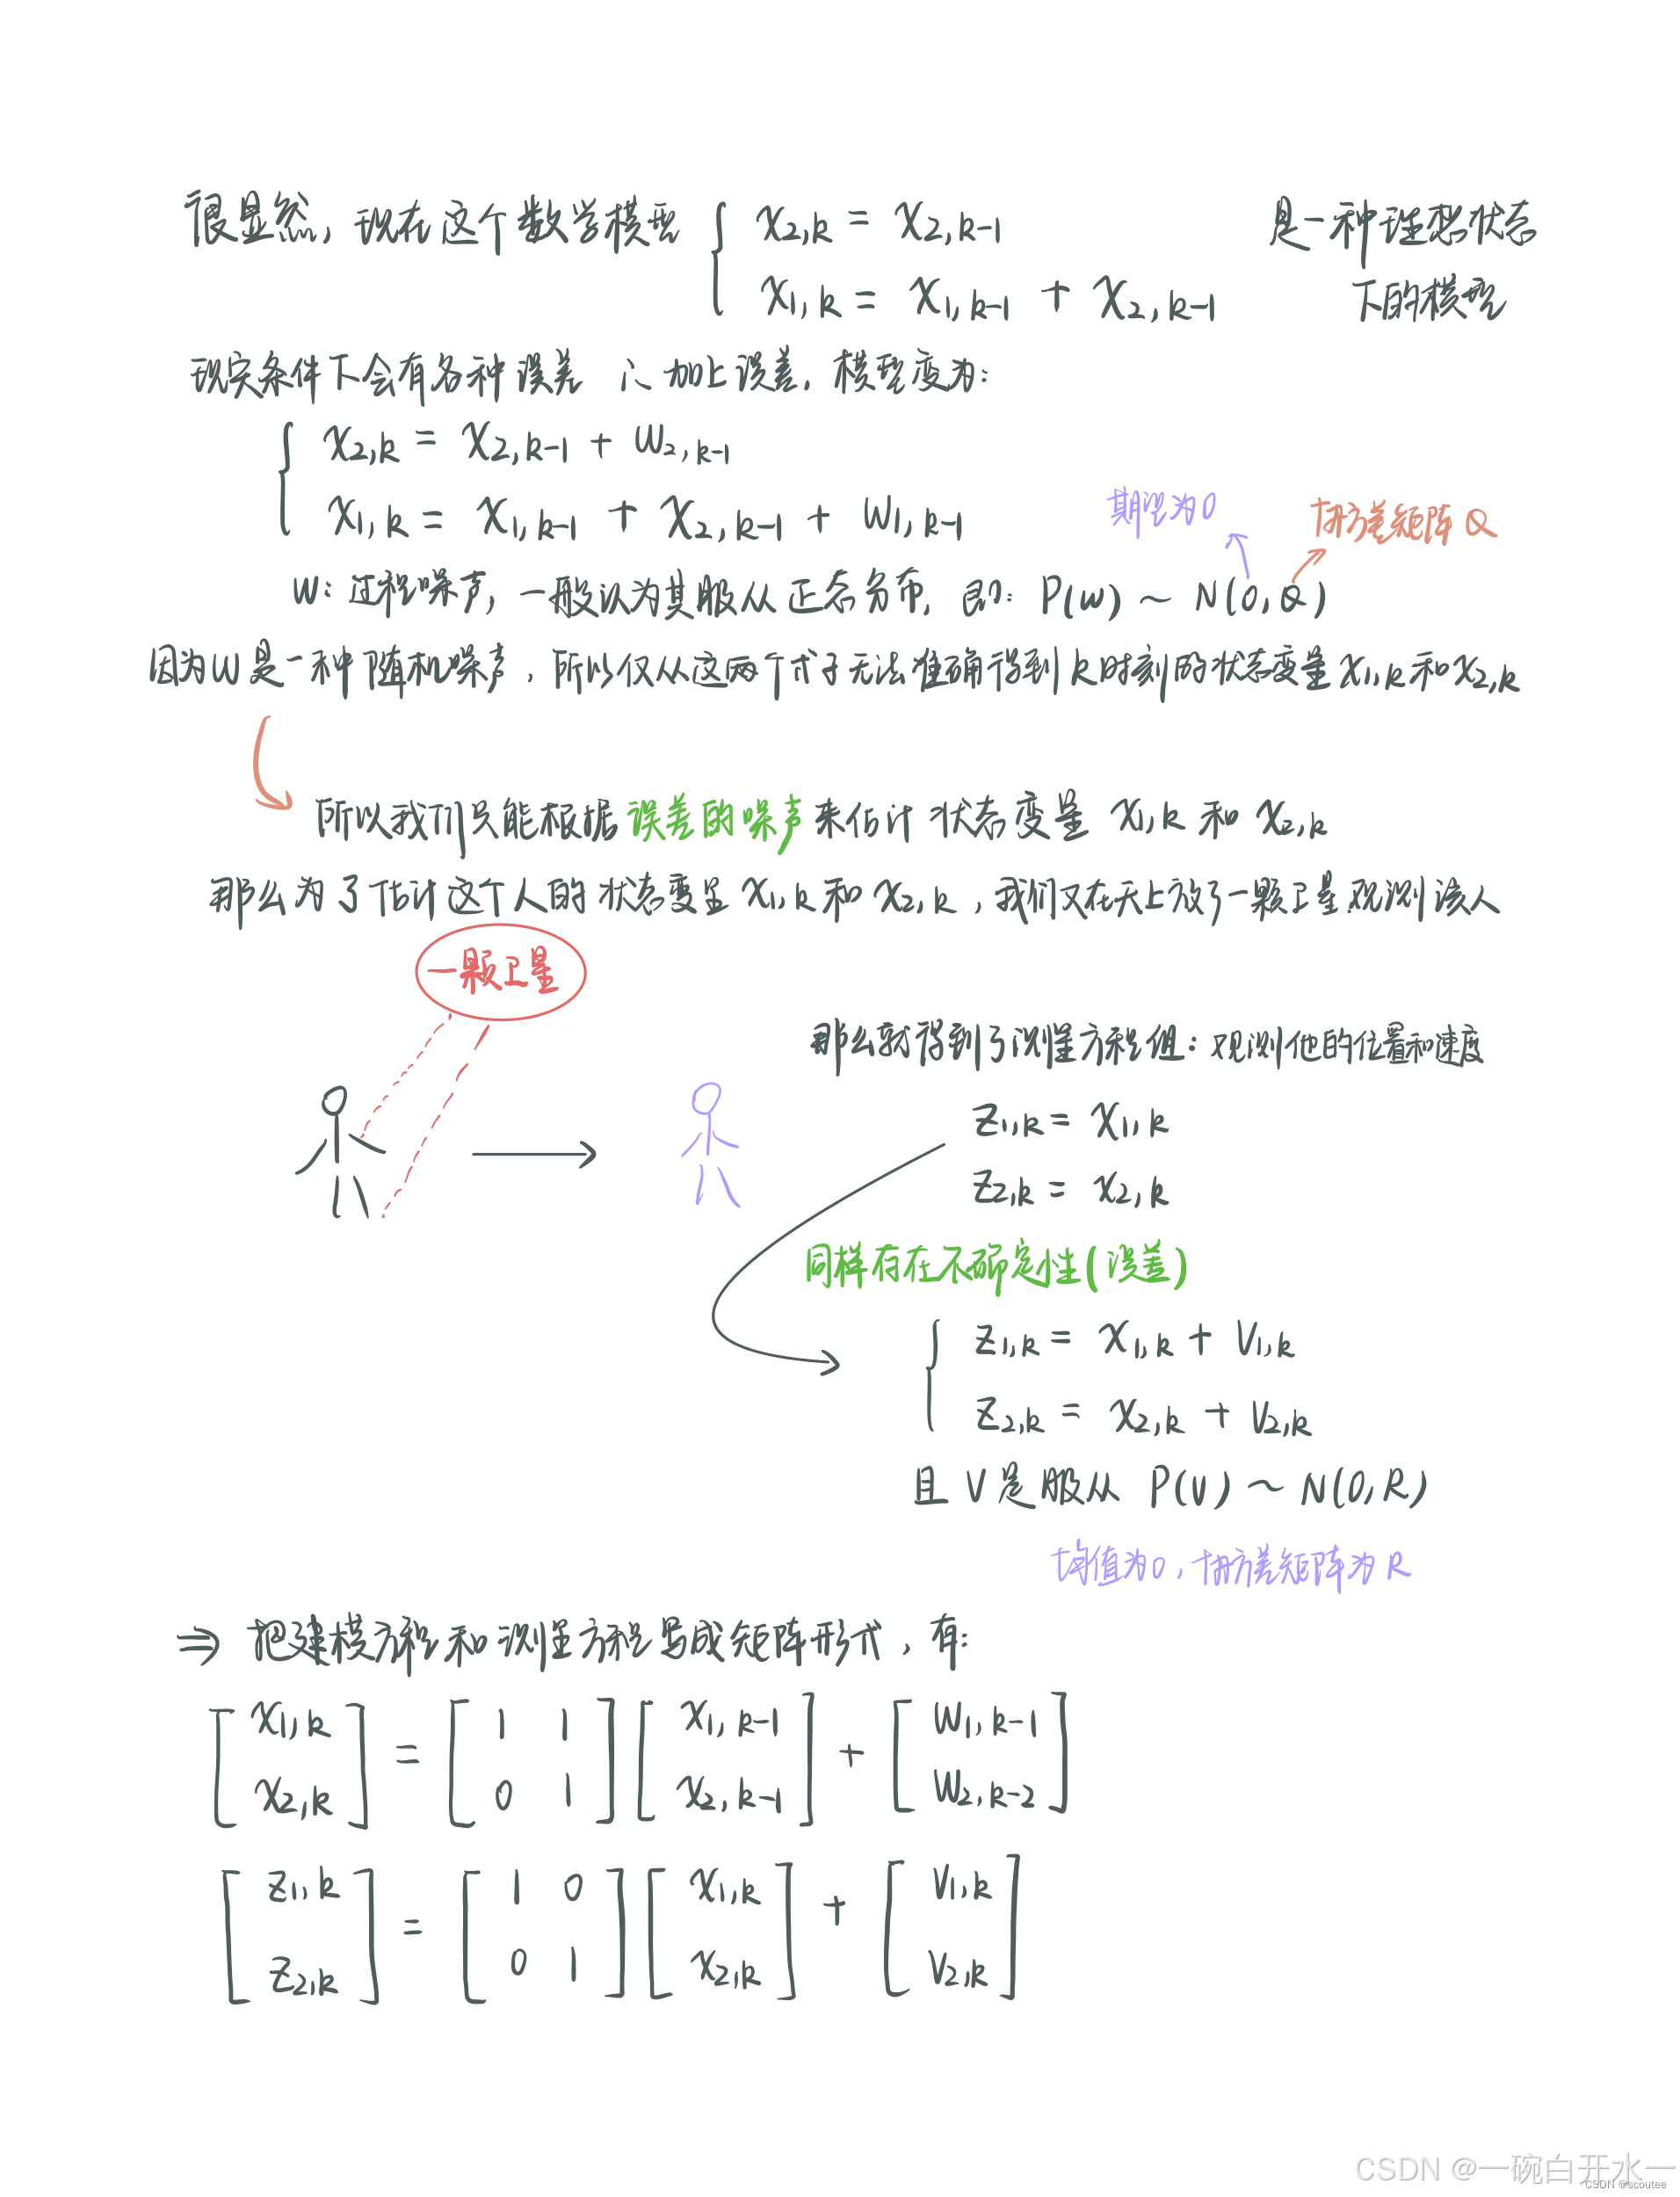 很显然，现在这个数学模型 { x2,k = x2,k-1 是一种理想状态
x1,k = x1,k-1 + x2,k-1 下的模型
现实条件下会有各种误差 ∴ 加上误差，模型变为：
{ x2,k = x2,k-1 + w2,k-1
x1,k = x1,k-1 + x2,k-1 + w1,k-1
期望为0 协方差矩阵 Q
w：过程噪声，一般认为其服从正态分布，即：P(w) ~ N(0, Q)
因为w是一种随机噪声，所以仅从这两个式子无法准确得到k时刻的状态变量x1,k和x2,k
所以我们只能根据误差的噪声来估计状态变量 x1,k 和 x2,k
那么为了估计这个人的状态变量 x1,k 和 x2,k，我们又在天上放了一颗卫星观测该人
一颗卫星
那么就得到了测量方程组：观测他的位置和速度
z1,k = x1,k
z2,k = x2,k
同样存在不确定性(误差)
{ z1,k = x1,k + v1,k
z2,k = x2,k + v2,k
且 V是服从 P(v) ~ N(0, R)
均值为0，协方差矩阵为 R
⇒ 把建模方程和测量方程写成矩阵形式，有：
[x1,k x2,k] = [1 1 0 1] [x1,k-1 x2,k-1] + [w1,k-1 w2,k-2]
[z1,k z2,k] = [1 0 0 1] [x1,k x2,k] + [v1,k v2,k]
CSDN @一碗白开水一
CSDN @scoutee